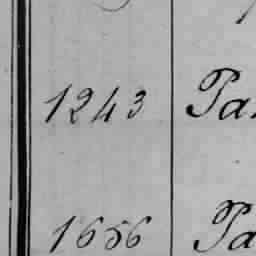 1243 Pa
1656 Pa